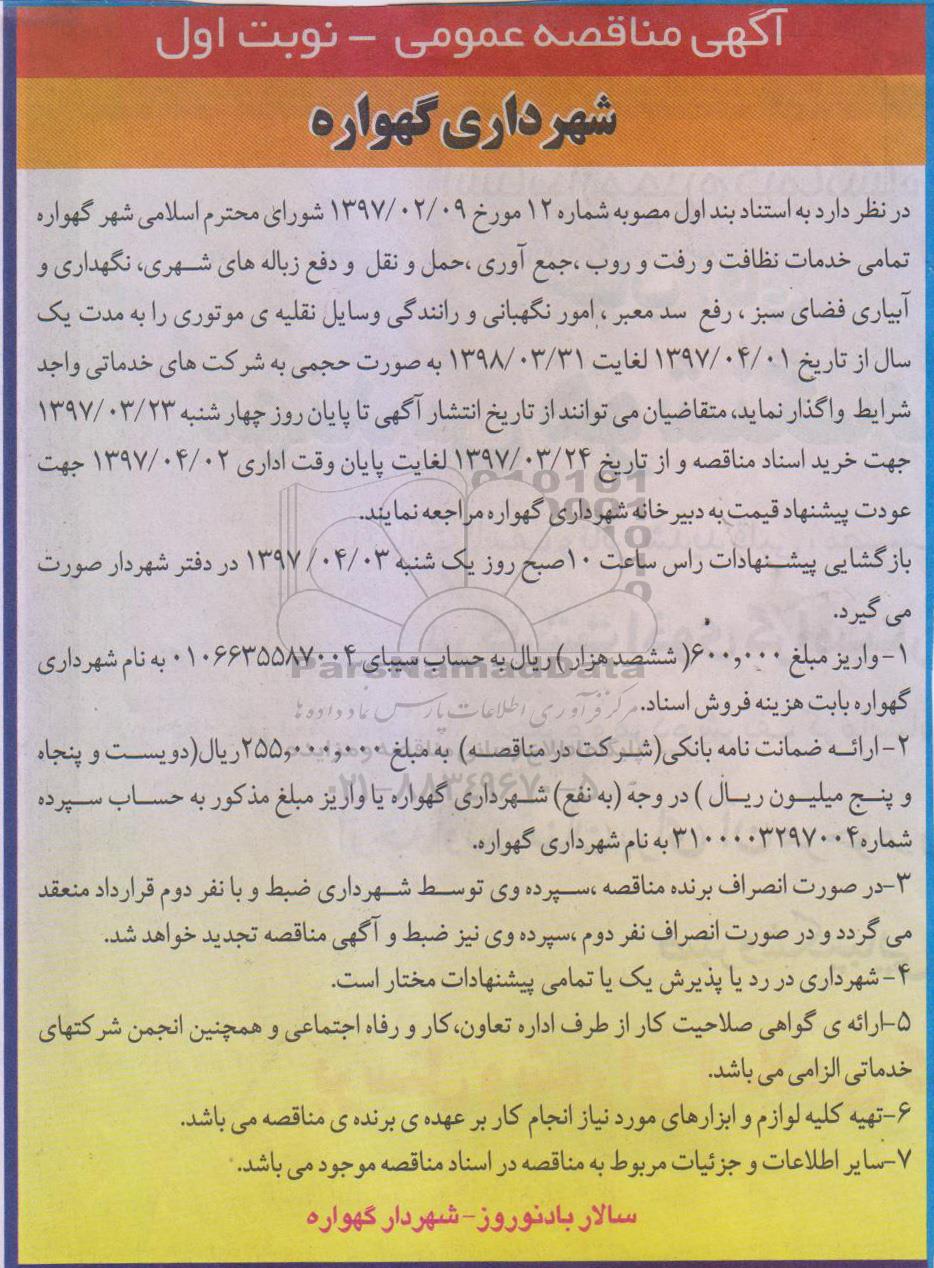 آگهی مناقصه عمومی - نوبت اول
شهرداری گهواره
در نظر دارد به استناد بند اول مصوبه شماره ۱۲ مورخ ۱۳۹۷/۰۲/۰۹ شورای محترم اسلامی شهر گهواره
تمامی خدمات نظافت و رفت و روب ،جمع آوری ،حمل و نقل و دفع زباله های شهری، نگهداری و
آبیاری فضای سبز ، رفع سد معبر ، امور نگهبانی و رانندگی وسایل نقلیه ی موتوری را به مدت یک
سال از تاریخ ۱۳۹۷/۰۴/۰۱ لغایت ۱۳۹۸/۰۳/۳۱ به صورت حجمی به شرکت های خدماتی واجد
شرایط واگذار نماید، متقاضیان می توانند از تاریخ انتشار آگهی تا پایان روز چهار شنبه ۱۳۹۷/۰۳/۲۳
جهت خرید اسناد مناقصه و از تاریخ ۱۳۹۷/۰۳/۲۴ لغایت پایان وقت اداری ۱۳۹۷/۰۴/۰۲ جهت
عودت پیشنهاد قیمت به دبیرخانه شهرداری گهواره مراجعه نمایند.
بازگشایی پیشنهادات راس ساعت ۱۰صبح روز یک شنبه ۱۳۹۷/۰۴/۰۳ در دفتر شهردار صورت
می گیرد.
۱- واریز مبلغ ۶۰۰,۰۰۰( ششصد هزار ) ریال به حساب سیبای ۰۱۰۶۶۳۵۵۸۷۰۰۴ به نام شهرداری
ParsNamadData
گهواره بابت هزینه فروش اسناد.
مرکز فرآوری اطلاعات پارس نماد داده ها
۲- ارائه ضمانت نامه بانکی(شرکت در مناقصه) به مبلغ ۲۵۵,۰۰۰,۰۰۰ریال(دویست و پنجاه
و پنج میلیون ریال ) در وجه (به نفع) شهرداری گهواره یا واریز مبلغ مذکور به حساب سپرده
۰۲۱-۸۸۳۴۹۶۷۰-۵
شماره۳۱۰۰۰۰۳۲۹۷۰۰۴ به نام شهرداری گهواره.
۳-در صورت انصراف برنده مناقصه ،سپرده وی توسط شهرداری ضبط و با نفر دوم قرارداد منعقد
می گردد و در صورت انصراف نفر دوم ،سپرده وی نیز ضبط و آگهی مناقصه تجدید خواهد شد.
۴- شهرداری در رد یا پذیرش یک یا تمامی پیشنهادات مختار است.
۵-ارائه ی گواهی صلاحیت کار از طرف اداره تعاون،کار و رفاه اجتماعی و همچنین انجمن شرکتهای
خدماتی الزامی می باشد.
۶-تهیه کلیه لوازم و ابزارهای مورد نیاز انجام کار بر عهده ی برنده ی مناقصه می باشد.
۷-سایر اطلاعات و جزئیات مربوط به مناقصه در اسناد مناقصه موجود می باشد.
سالار بادنوروز-شهردار گهواره